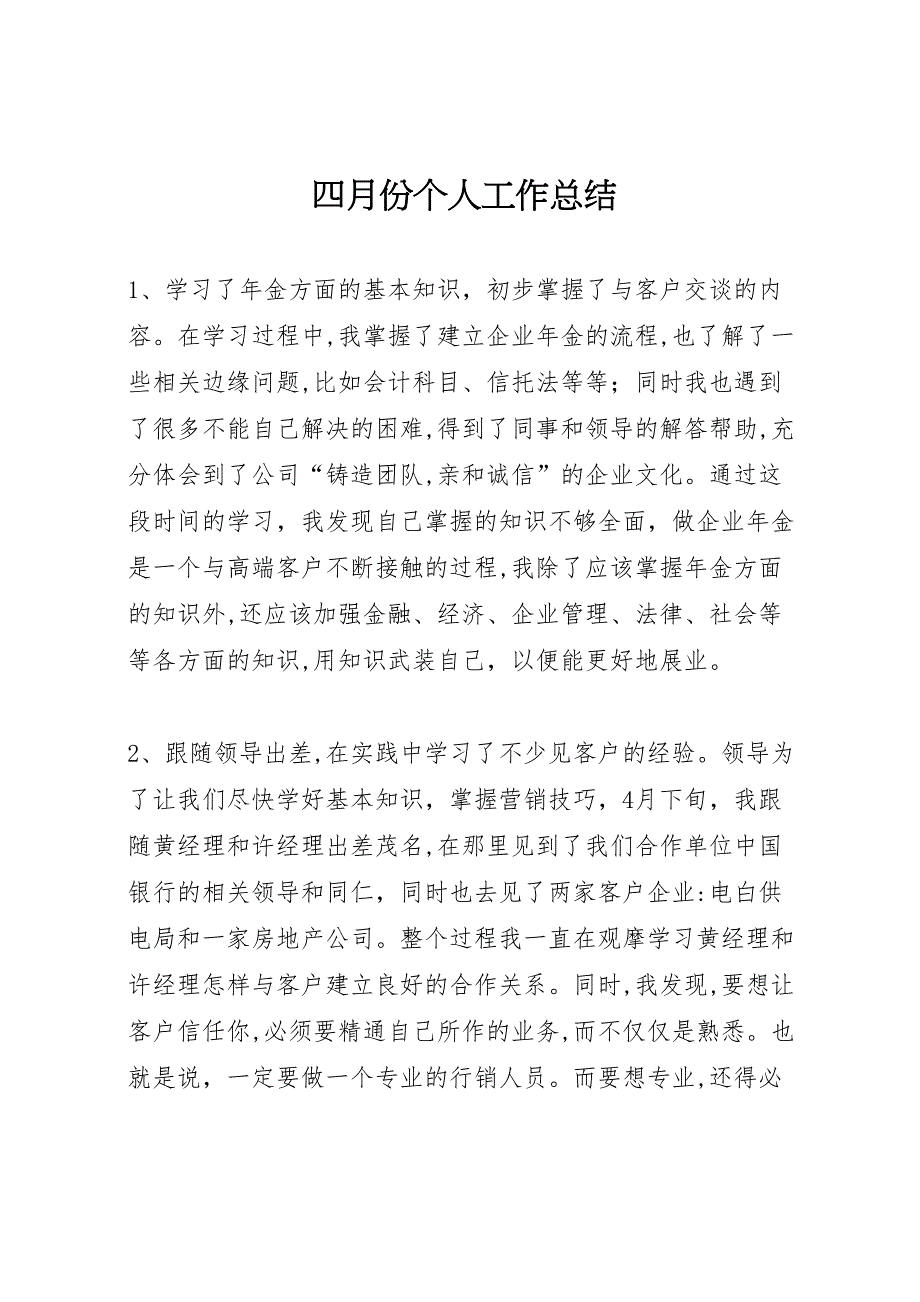 四月份个人工作总结
1、学习了年金方面的基本知识，初步掌握了与客户交谈的内
容。在学习过程中,我掌握了建立企业年金的流程,也了解了一
些相关边缘问题,比如会计科目、信托法等等；同时我也遇到
了很多不能自己解决的困难,得到了同事和领导的解答帮助,充
分体会到了公司“铸造团队,亲和诚信”的企业文化。通过这
段时间的学习，我发现自己掌握的知识不够全面，做企业年金
是一个与高端客户不断接触的过程,我除了应该掌握年金方面
的知识外,还应该加强金融、经济、企业管理、法律、社会等
等各方面的知识,用知识武装自己，以便能更好地展业。
2、跟随领导出差,在实践中学习了不少见客户的经验。领导为
了让我们尽快学好基本知识，掌握营销技巧，4月下旬，我跟
随黄经理和许经理出差茂名,在那里见到了我们合作单位中国
银行的相关领导和同仁，同时也去见了两家客户企业:电白供
电局和一家房地产公司。整个过程我一直在观摩学习黄经理和
许经理怎样与客户建立良好的合作关系。同时,我发现,要想让
客户信任你,必须要精通自己所作的业务,而不仅仅是熟悉。也
就是说，一定要做一个专业的行销人员。而要想专业,还得必